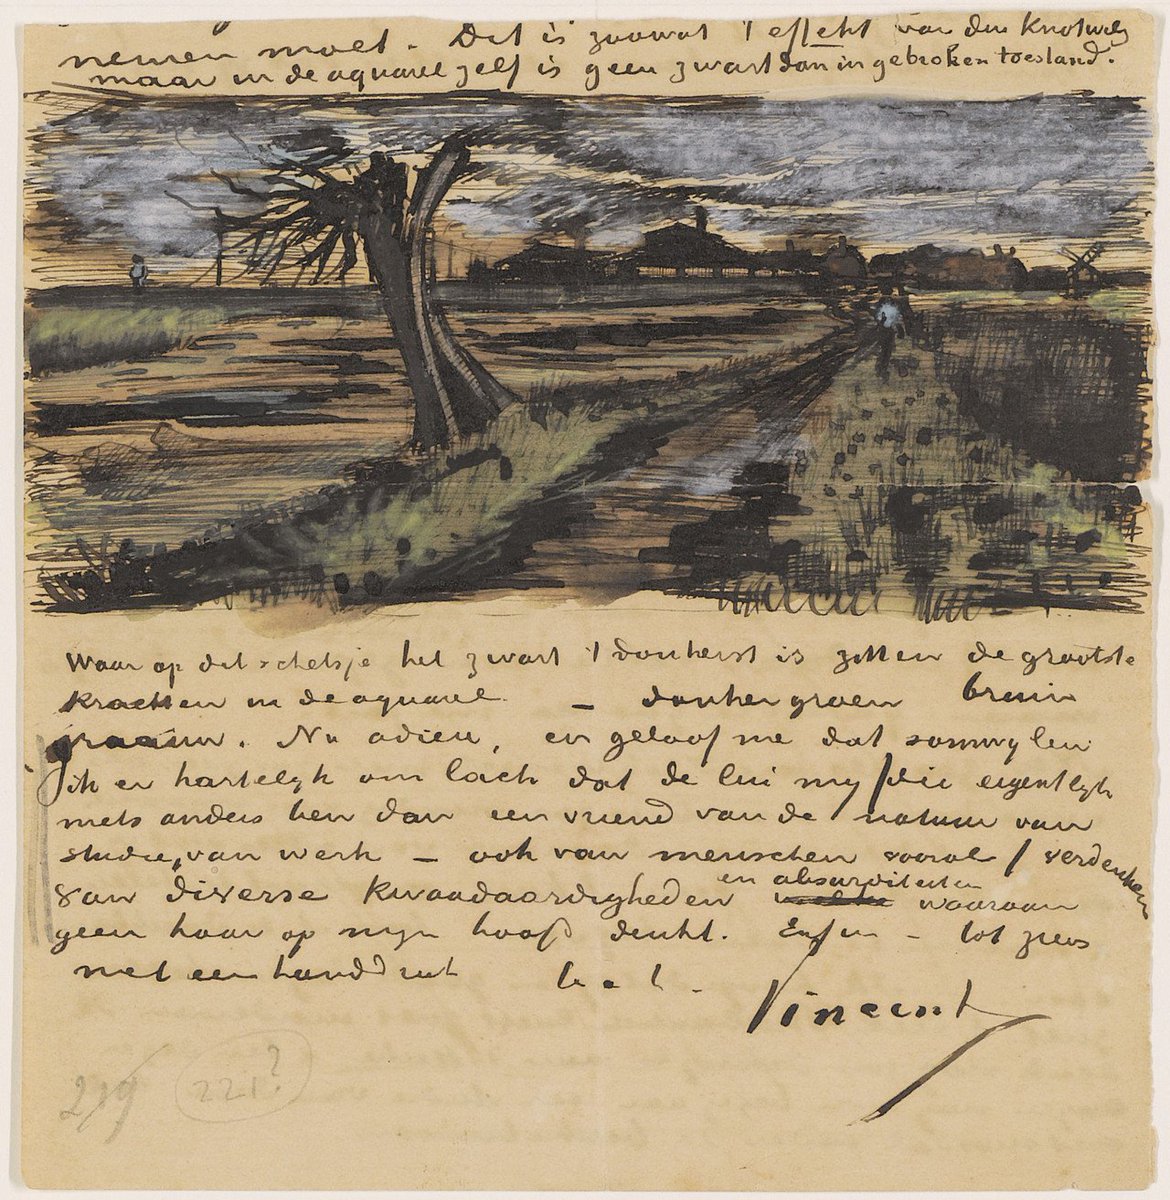 nemen moet. Dit is zoowat 't effekt van den Knotwilg
maar in de aquarel zelf is geen zwart dan in gebroken toestand.
Waar op dit schetsje het zwart 't donkerst is zitten de grootste
krachten in de aquarel – donkergroen bruin
graauw. Nu adieu, en geloof me dat somwylen
ik er hartelyk om lach dat de lui my (die eigentlyk
niets anders ben dan een vriend van de natuur van
studie, van werk – ook van menschen vooral) verdenken
van diverse kwaadaardigheden en absurditeiten waaraan
geen haar op myn hoofd denkt. Enfin – tot ziens
met een handdruk
Vincent
219 221?